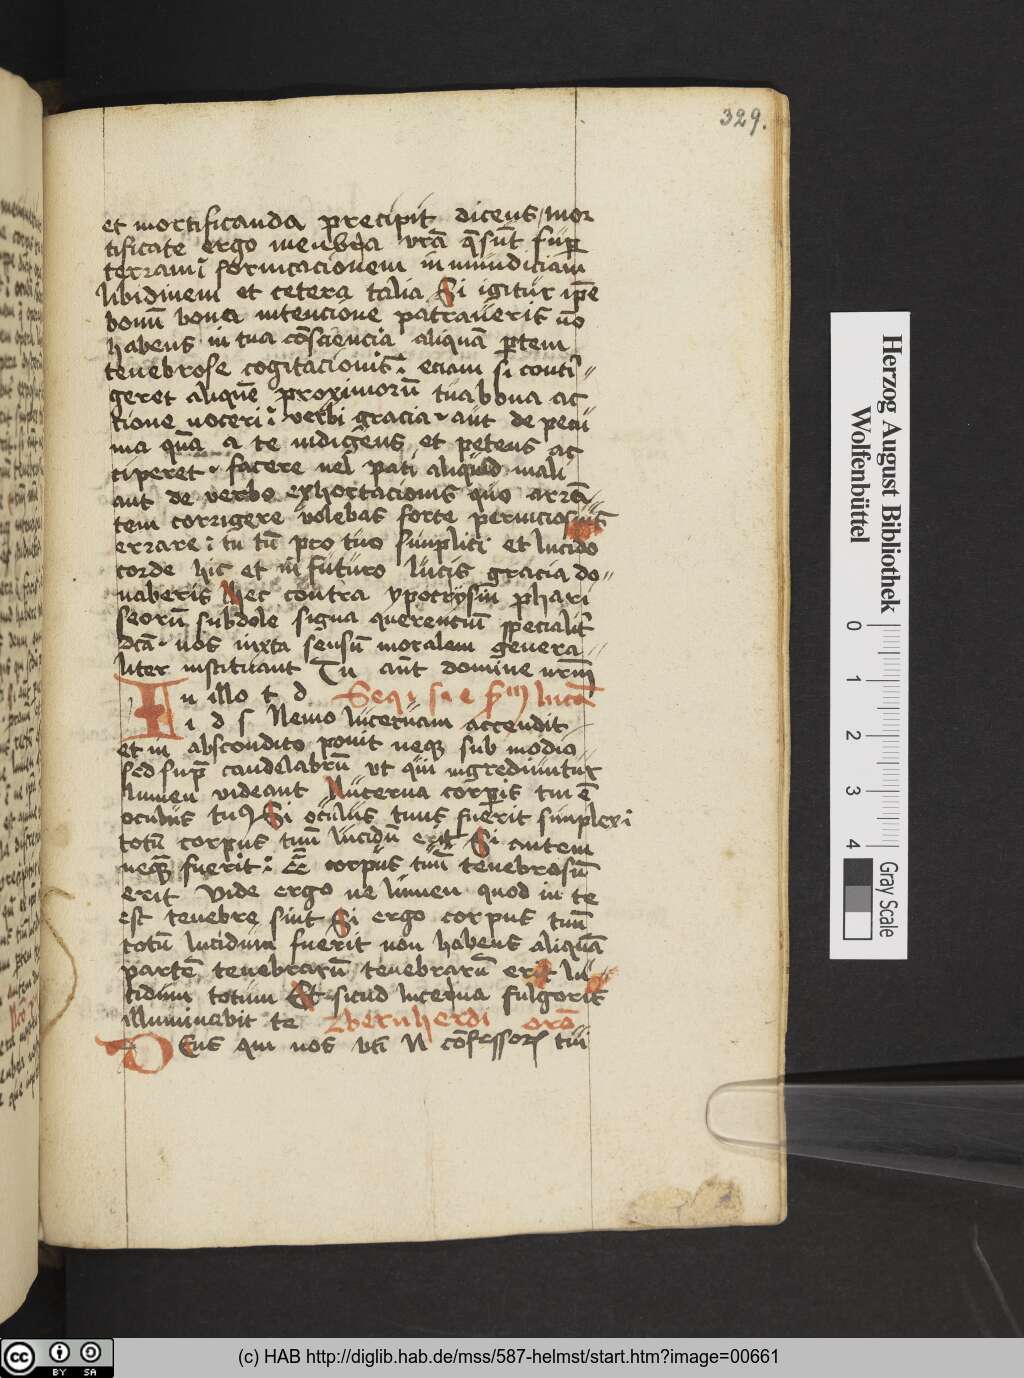 329.
et mortificanda precipit dicens / mor
tificate ergo menbra vr̄a q̄ sūt sup̄
terram ī fornicacionem inmundiciam
libidinem et cetera talia Si igitur ip̄e
bonū bona intencione patraueris nō
habens in tua cōsciencia aliquā ꝑtem
tenebrose cogitacionis ī eciam si conti〃
geret aliquē proximorū tua bona ac
cione noceri ī verbi gracia aut de pecu
nia quā a te indigens et petens ac
ciperet facere uel pati aliquid mali
aut de verbo exhortacionis quo
tem corrigere volebas forte perniciosius
errare ī tu tn̄ pro tuo simplici et lucido
corde hic et in futuro lucis gracia do〃
naberis Nec contra ypocrysim phari
seorū subdole signa querenciū specialit̄
dc̄a nos iuxta sensū moralem genera〃
liter instituant Tu aūt domine nr̄m
In illo t d Seq s e lucā
i d s Nemo lucernam accendit
et in abscondito ponit neqꝫ sub modio
sed sup̄ candelabrū vt qui ingrediuntur
lumen videant Lucerna corꝑis tui ē
oculus tuꝰ Si oculus tuus fuerit simplex ī
totū corpus tuū lucidū erit Si autem
neqꝫ fuerit ī corpus tuū tenebrosū
erit Vide ergo ne lumen quod in te
est tenebre sint Si ergo corpus tuū
totū lucidum fuerit non habens aliquā
partē tenebrarū tenebrarū erit lu〃
cidum totum Et sicud lucerna fulgoris
illuminabit te Bernherdi orō
Deus qui nos bt̄i N cōfessorꝭ tui
Herzog August Bibliothek
Wolfenbüttel
0 1 2 3 4
Gray Scale
cc BY SA
(c) HAB http://diglib.hab.de/mss/587-helmst/start.htm?image=00661